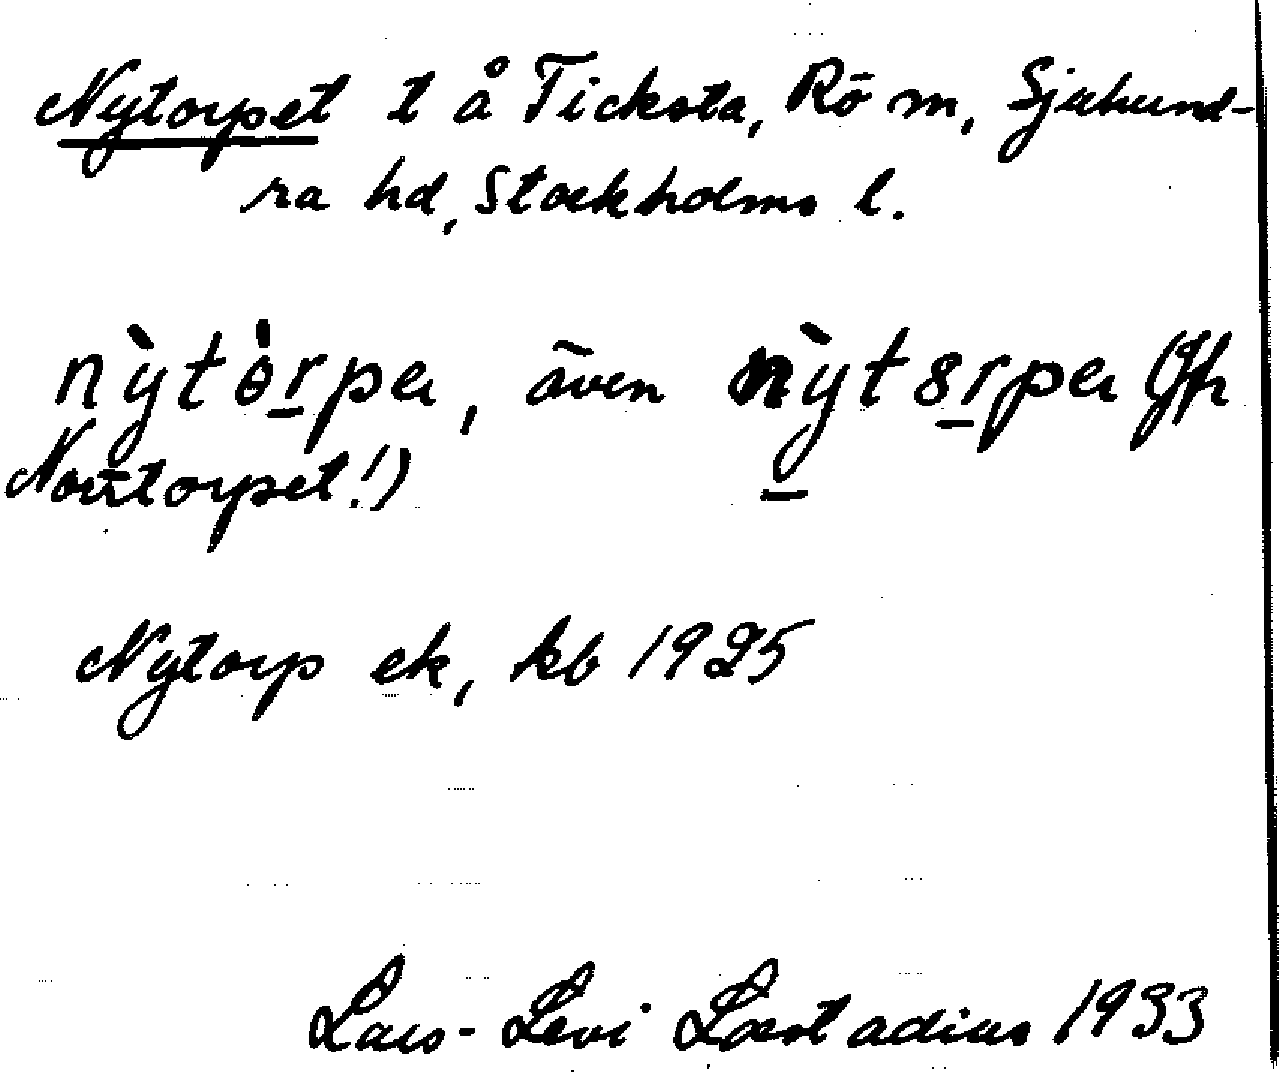 Nytorpet t å Ticksta, Rö sn, Sjuhund-
ra hd, Stockholms l.
nỳtòrpa, även nỳtorpa (Jfr
Norrtorpet!)
Nytorp ek, kb 1925
Lars-Levi Læstadius 1933